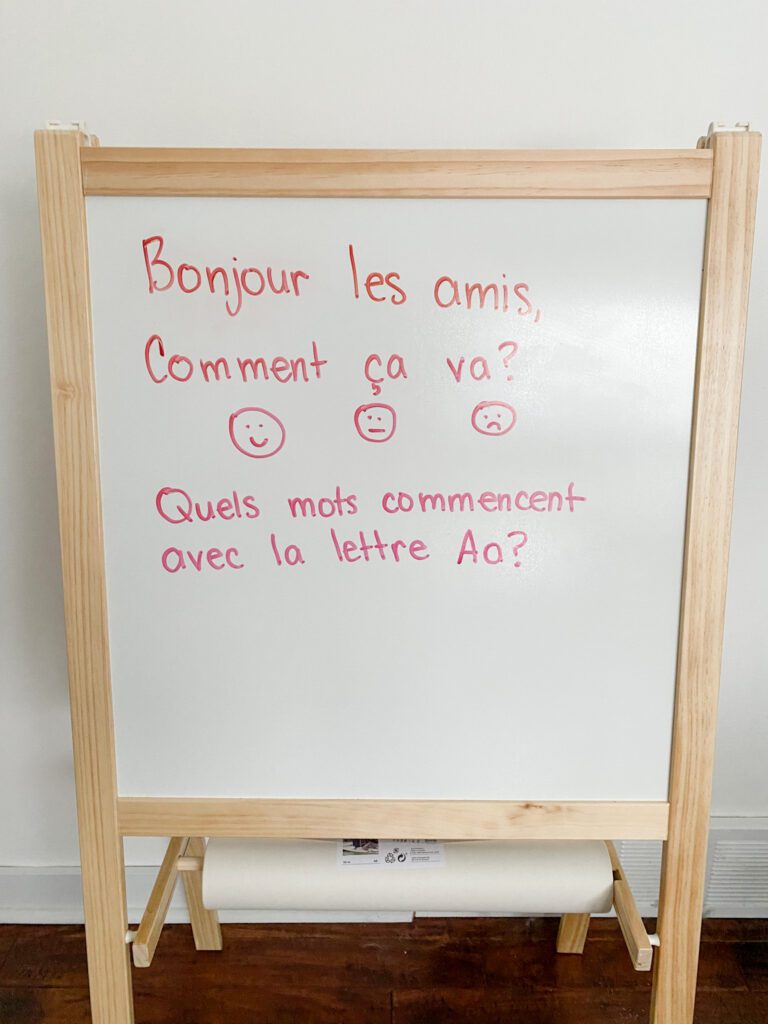 Bonjour les amis,
Comment ça va?
Quels mots commencent
avec la lettre Aa?